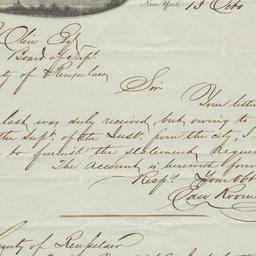 New York, 13 Octo
Cline Esq
Board of Sups
ty of Rensselaer
Sir
Your letter
last was duly received, but owing to
the Supt. of the Inst. from the city, I
to furnish the statement reque
The account is herewith forw
Respy. Your Obt
Edw. Room
unty of Rensselaer